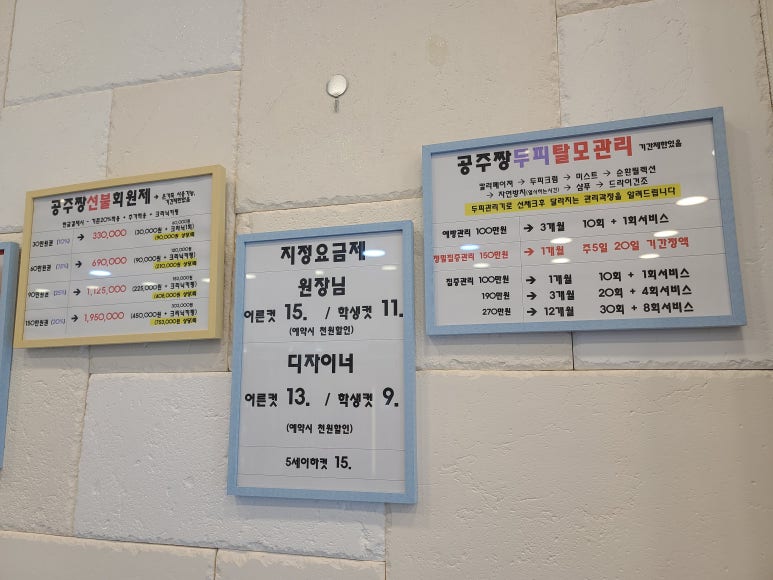 공주짱선불회원제 → 온가족 사용가능, 기간제한없음
현금결제시 - 기본20%적용 + 추가적용 + 크리닉키핑
30만원권 (10%) → 330,000 (30,000원 + 크리닉1회)
(90,000원 상당액)
60만원권 (15%) → 690,000 (90,000원 + 크리닉키핑)
(210,000원 상당액)
90만원권 (25%) → 1,125,000 (225,000원 + 크리닉키핑)
150만원권 (30%) → 1,950,000 (450,000원 + 크리닉키핑)
(753,000원 상당액)
지정요금제
원장님
어른컷 15. / 학생컷 11.
(예약시 천원할인)
디자이너
어른컷 13. / 학생컷 9.
(예약시 천원할인)
5세이하컷 15.
공주짱두피탈모관리 기간제한있음
괄라메이져 → 두피크림 → 미스트 → 순환찜렉션
→ 자연방치(열식히는시간) → 샴푸 → 드라이건조
두피관리기로 선체크후 달라지는 관리과정을 알려드립니다
예방관리 100만원 → 3개월 10회 + 1회서비스
정밀집중관리 150만원 → 1개월 주5일 20일 기간정액
집중관리 100만원 → 1개월 10회 + 1회서비스
190만원 → 3개월 20회 + 4회서비스
270만원 → 12개월 30회 + 8회서비스